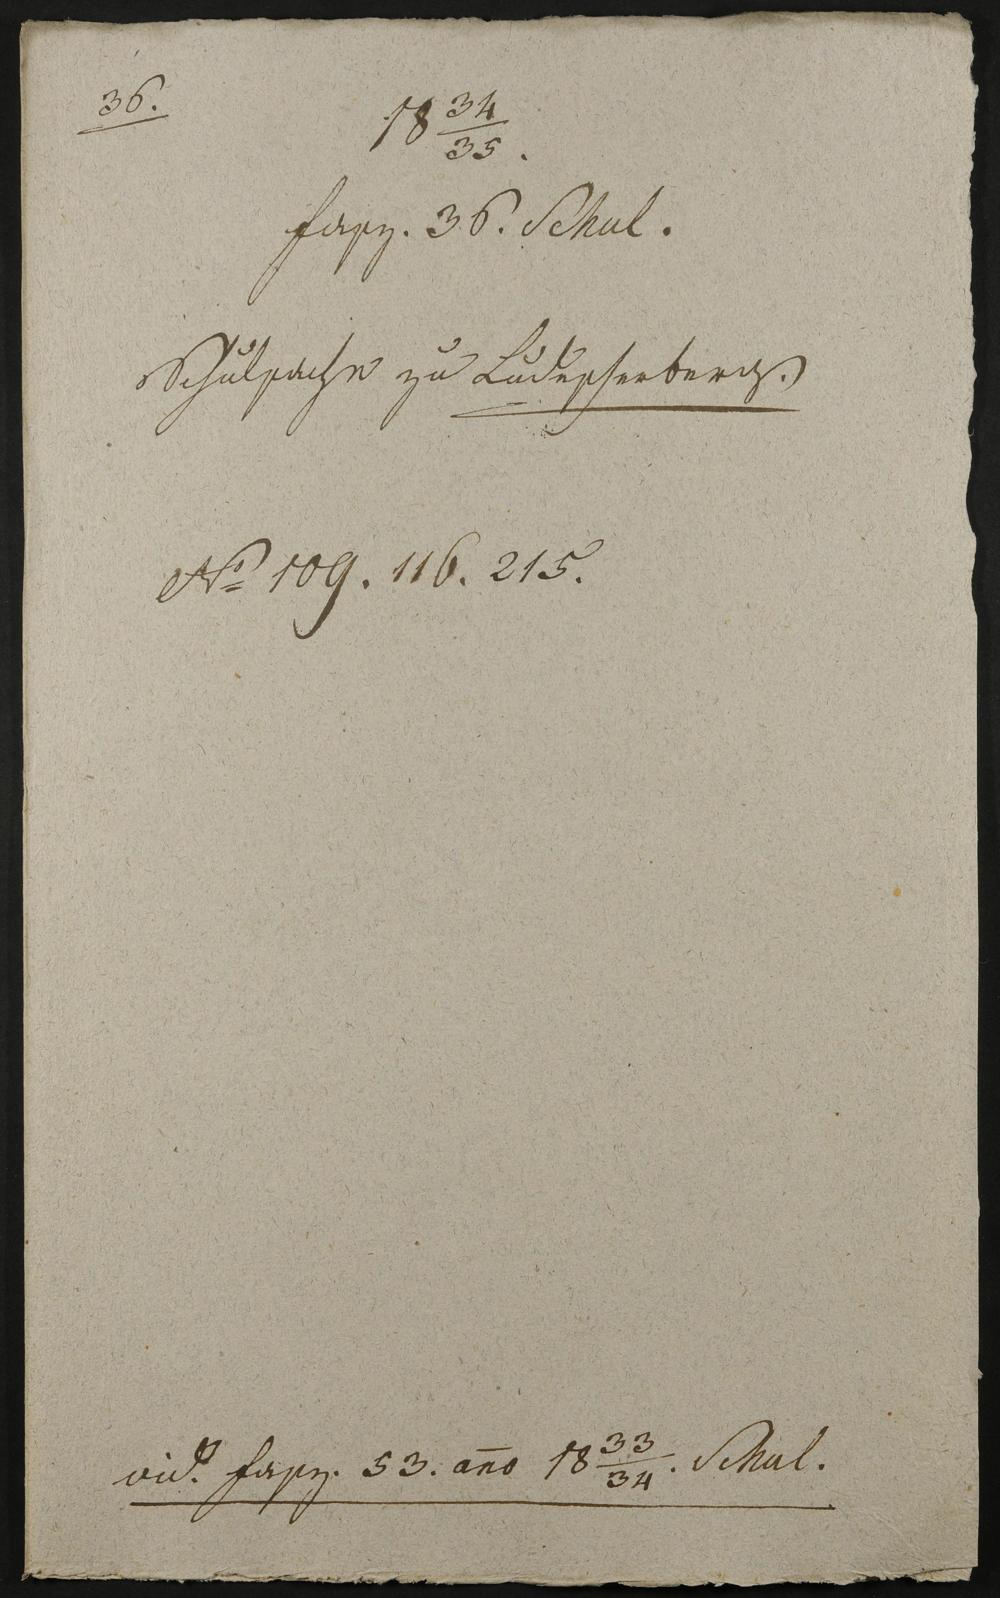 36.
18 34/35.
fasz. 36. Schul.
Schulsache zu
No 109. 116. 215.
vid. fasz. 53. año 18 33/34. Schul.